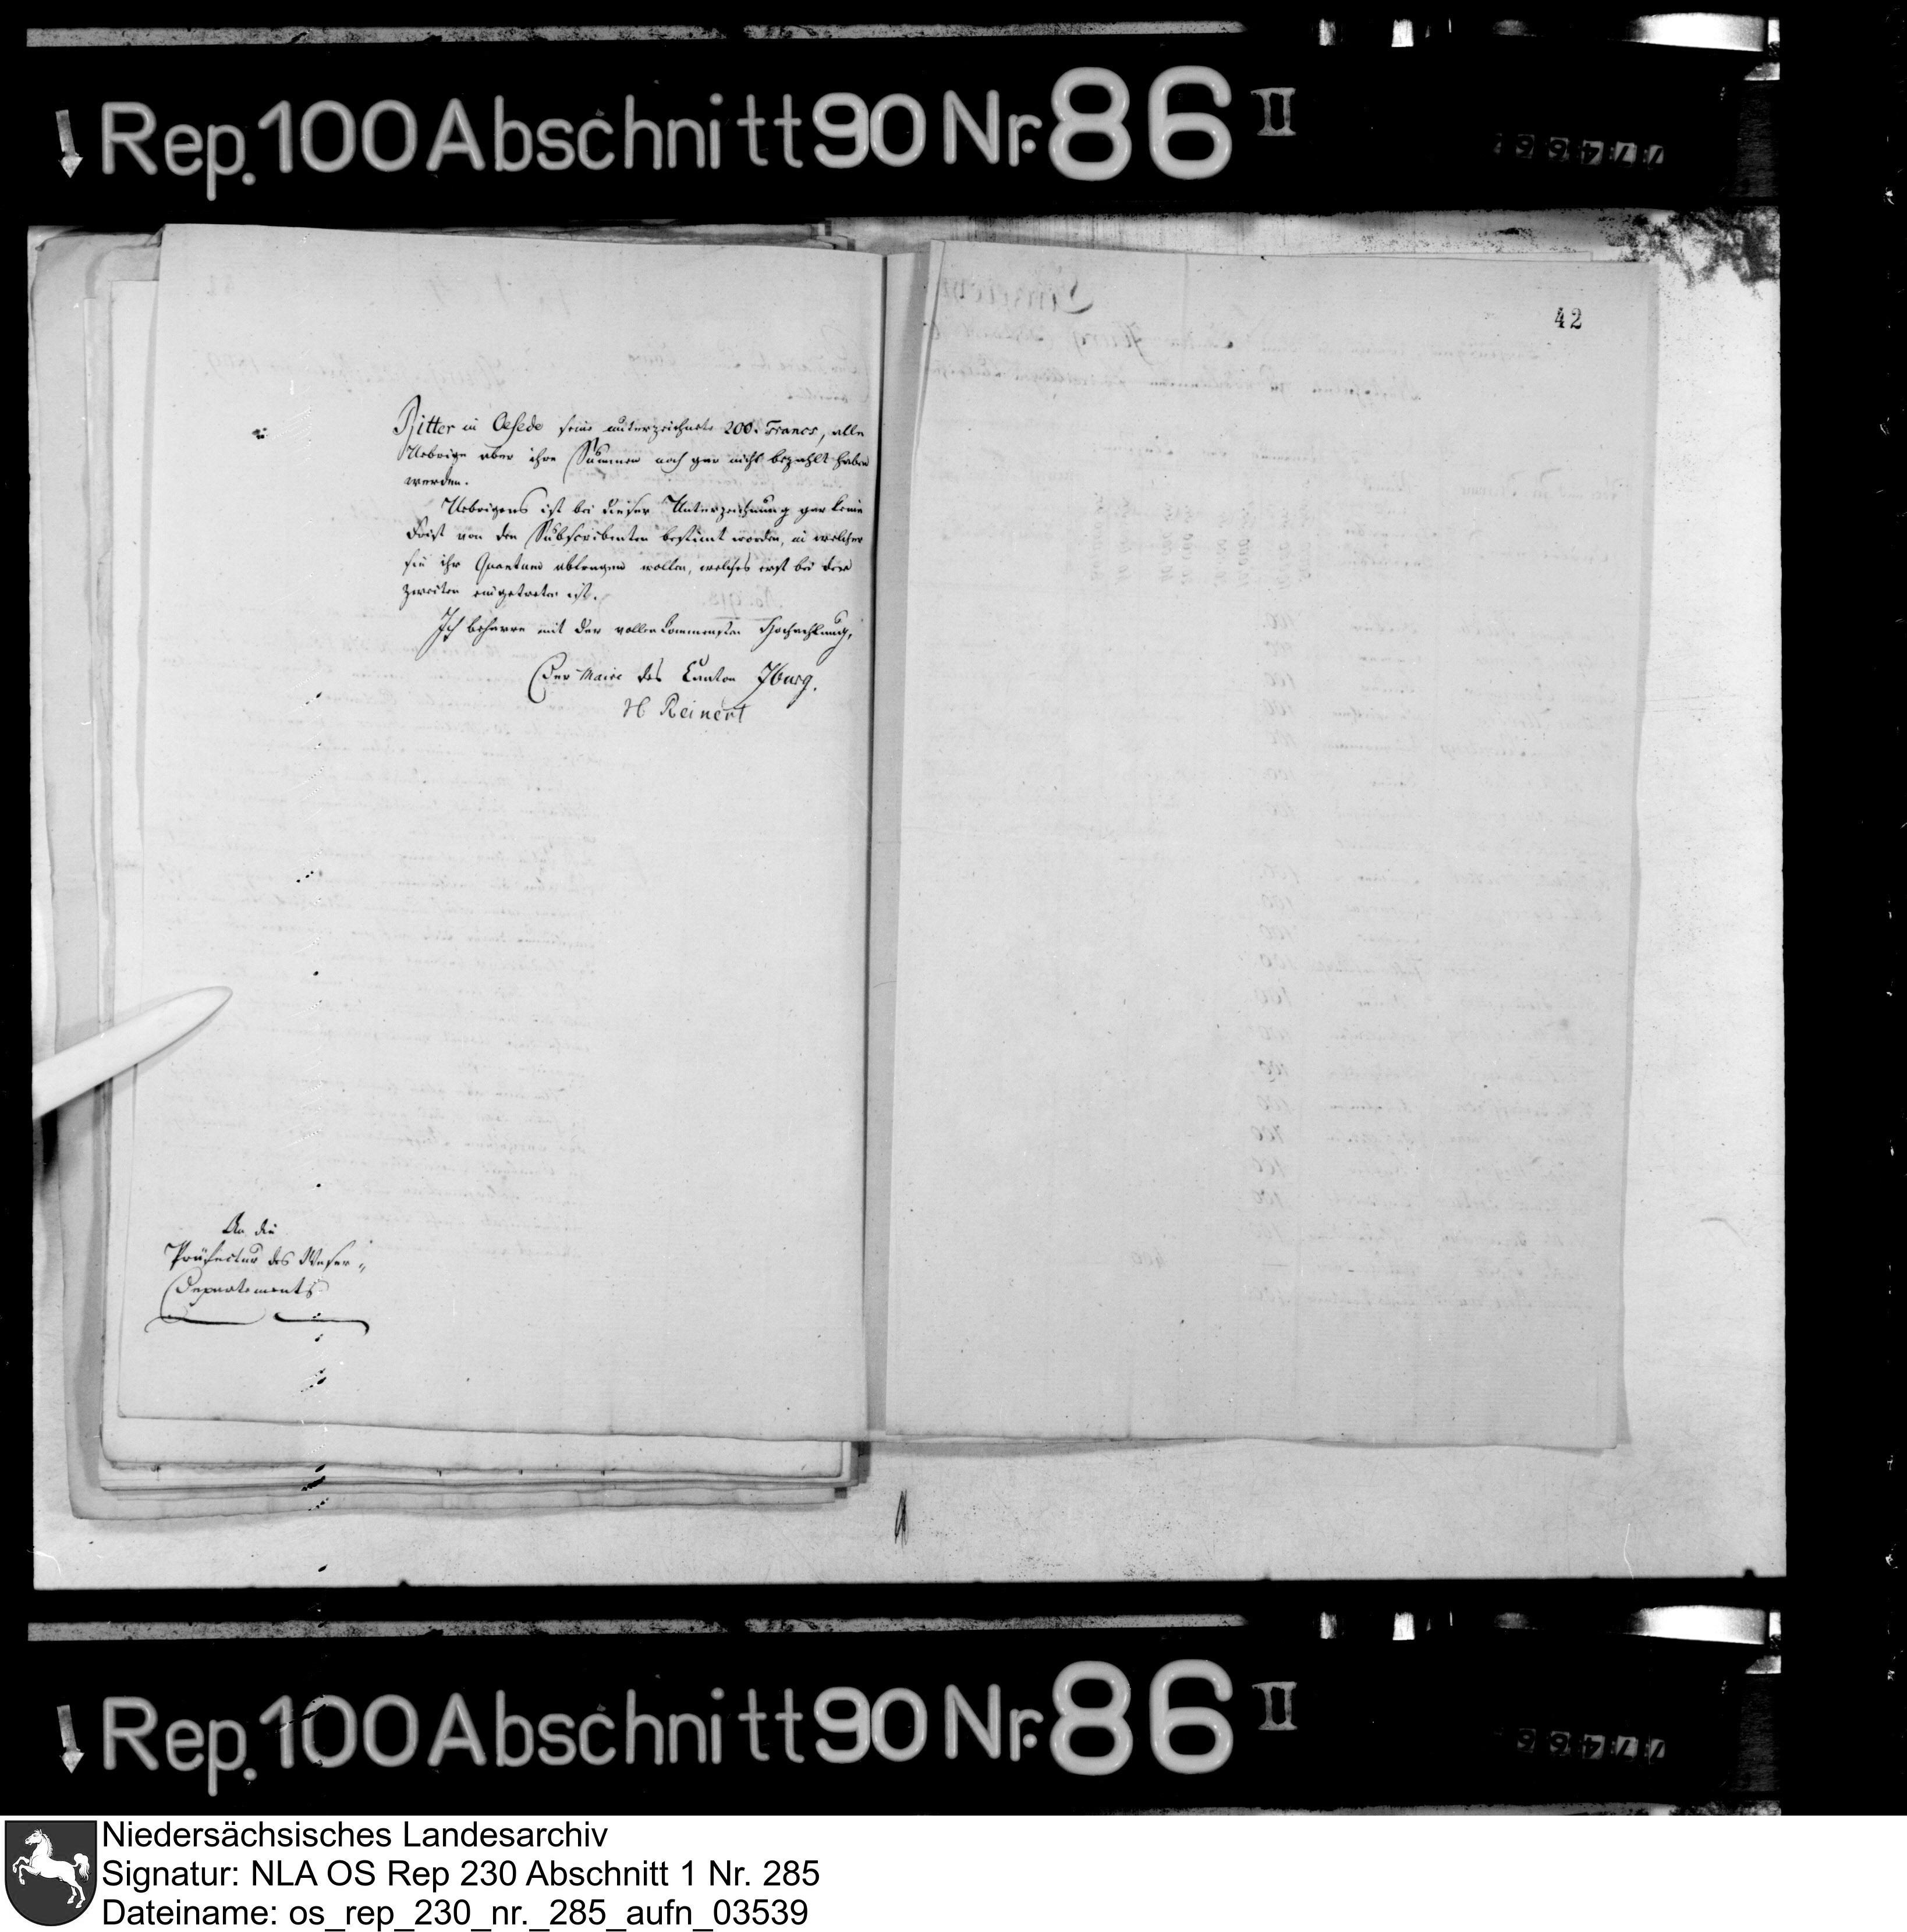 Rep. 100 Abschnitt 90 Nr. 86 II
42
Ritter in Oesede seine unterzeichnete 200. Francs, alle
Uebrige aber ihre Summen noch gar nicht bezahlt haben
werden.
Uebrigens ist bei dieser Unterzeichnung gar keine
Frist von den Subscribenten bestimt worden, in welcher
sie ihr Quantum abtragen wollen, welches erst bei der
zweiten eingetreten ist.
Ich beharre mit der vollenkommensten Hochachtung,
Der Maire des Canton Iburg.
H Reinert
An die
Präfectur des Weser-
Departements
Rep. 100 Abschnitt 90 Nr. 86 II
Niedersächsisches Landesarchiv
Signatur: NLA OS Rep 230 Abschnitt 1 Nr. 285
Dateiname: os_rep_230_nr._285_aufn_03539